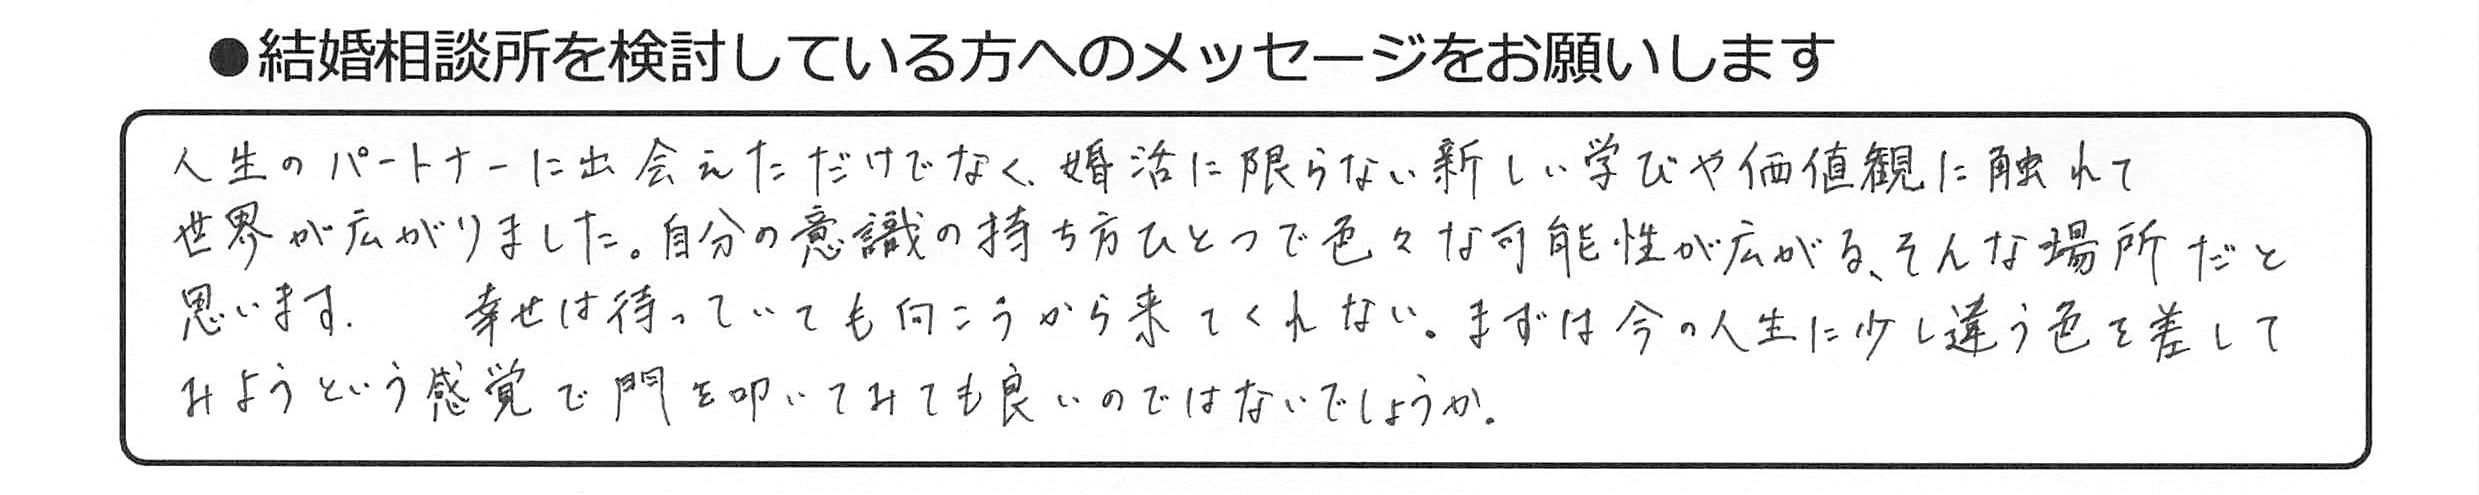 ●結婚相談所を検討している方へのメッセージをお願いします
人生のパートナーに出会えただけでなく、婚活に限らない新しい学びや価値観に触れて
世界が広がりました。自分の意識の持ち方ひとつで色々な可能性が広がる、そんな場所だと
思います. 幸せは待っていても向こうから来てくれない。まずは今の人生に少し違う色を差して
みようという感覚で門を叩いてみても良いのではないでしょうか。